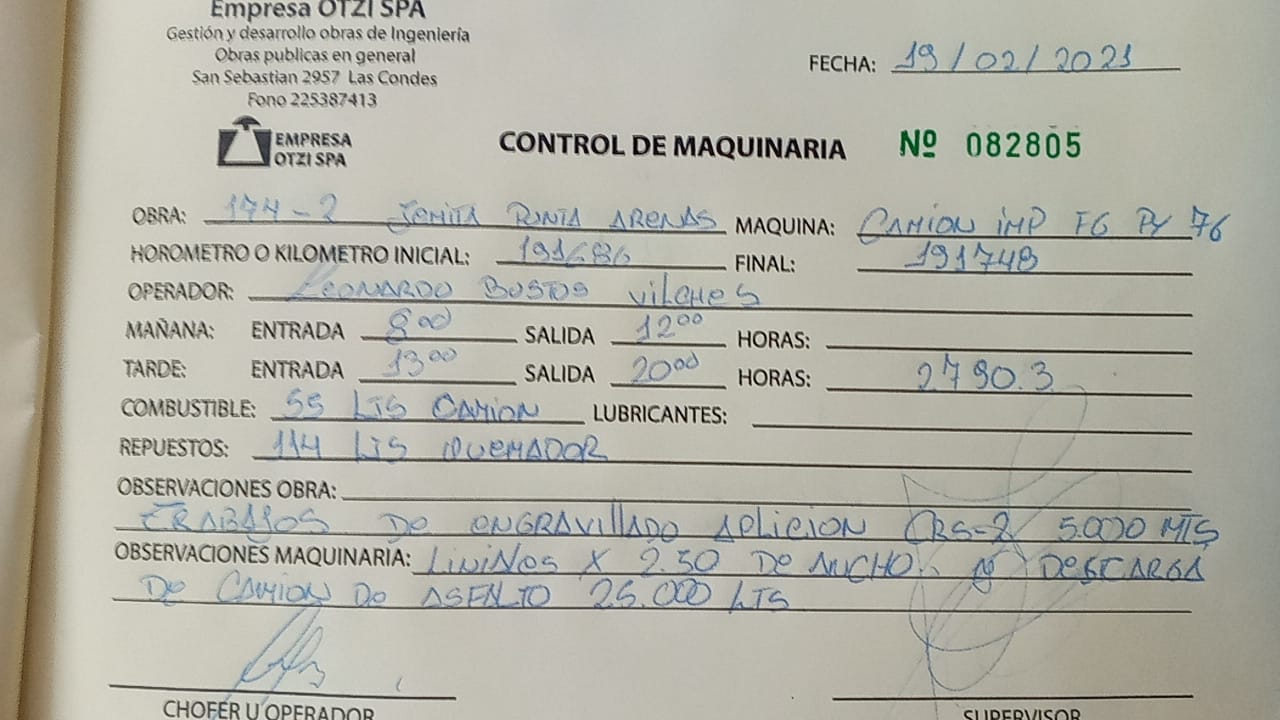 Empresa OTZI SPA
Gestión y desarrollo obras de Ingeniería
Obras publicas en general
San Sebastian 2957 Las Condes
Fono 225387413
FECHA: 19/02/2021
EMPRESA
OTZI SPA
CONTROL DE MAQUINARIA Nº 082805
OBRA: 174-2 PUNTA ARENAS MAQUINA: CAMION IMP FG PY 76
HOROMETRO O KILOMETRO INICIAL: 191686 FINAL: 191748
OPERADOR: LEONARDO BUSTOS VILCHES
MAÑANA: ENTRADA 8:00 SALIDA 12:00 HORAS:
TARDE: ENTRADA 13:00 SALIDA 20:00 HORAS: 2790.3
COMBUSTIBLE: 55 LTS CAMION LUBRICANTES:
REPUESTOS: 114 LTS QUEMADOR
OBSERVACIONES OBRA:
TRABAJOS DE ENGRAVILLADO APLICION CRS-2 5.000 MTS
OBSERVACIONES MAQUINARIA: LINIÑOS X 2.50 DE ANCHO DESCARGA
DE CAMION DE ASFALTO 25.000 LTS
CHOFER U OPERADOR SUPERVISOR